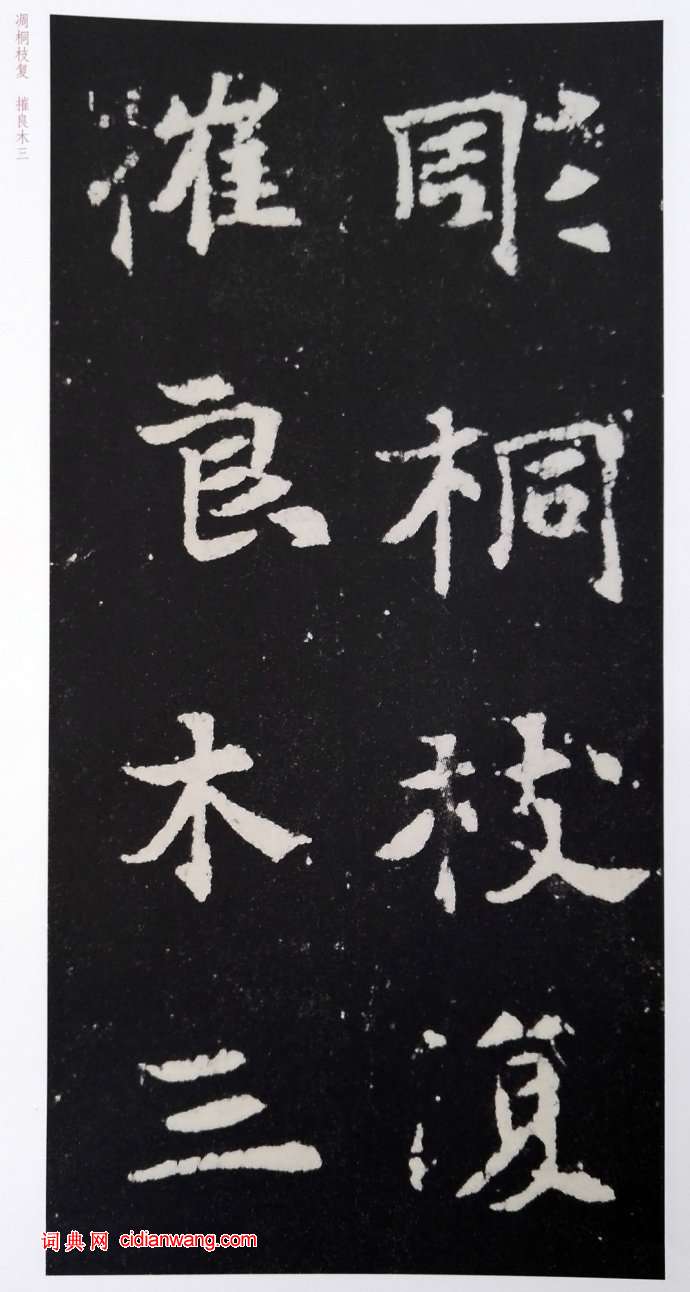 彫桐枝復
摧良木三
凋桐枝复 摧良木三
词典网 cidianwang.com